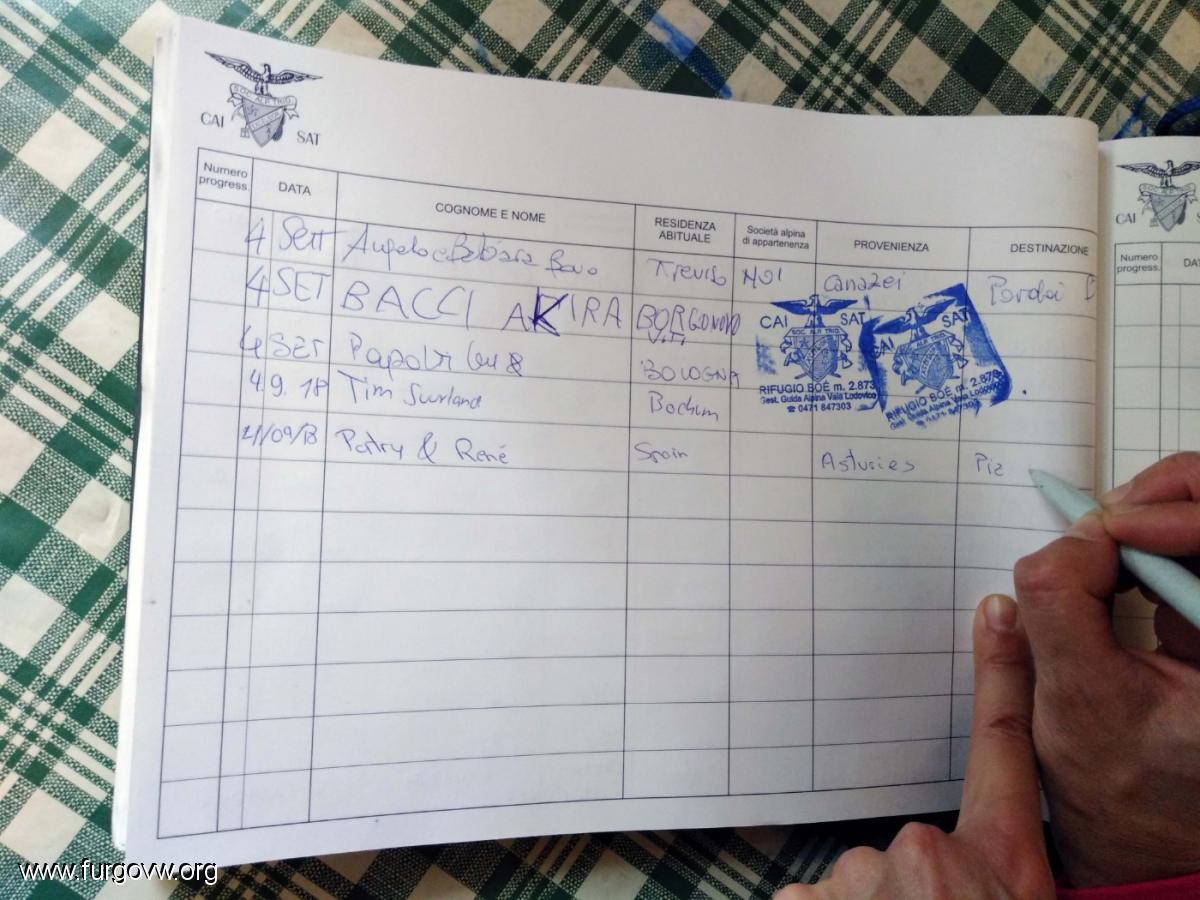 SOC. ALP. TRID.
EXCELSIOR
CAI SAT
Numero progress. DATA COGNOME E NOME RESIDENZA ABITUALE Società alpina di appartenenza PROVENIENZA DESTINAZIONE
4 Sett Angelo e Barbara Treviso Canazei Pordoi
4 SET BACCI AKIRA BORGONOVO
4 SET BOLOGNA
4.9.18 Tim Bochum
4/09/18 Patry & René Spain Asturies Piz
CAI SAT
SOC. ALP. TRID.
RIFUGIO BOÈ m. 2.873
Gest. Guida Alpina Vaia Lodovico
☎ 0471 847303
CAI SAT
RIFUGIO BOÈ m. 2.873
Gest. Guida Alpina Vaia Lodovico
☎ 0471 847303
CAI
Numero progress.
DAT
www.furgovw.org